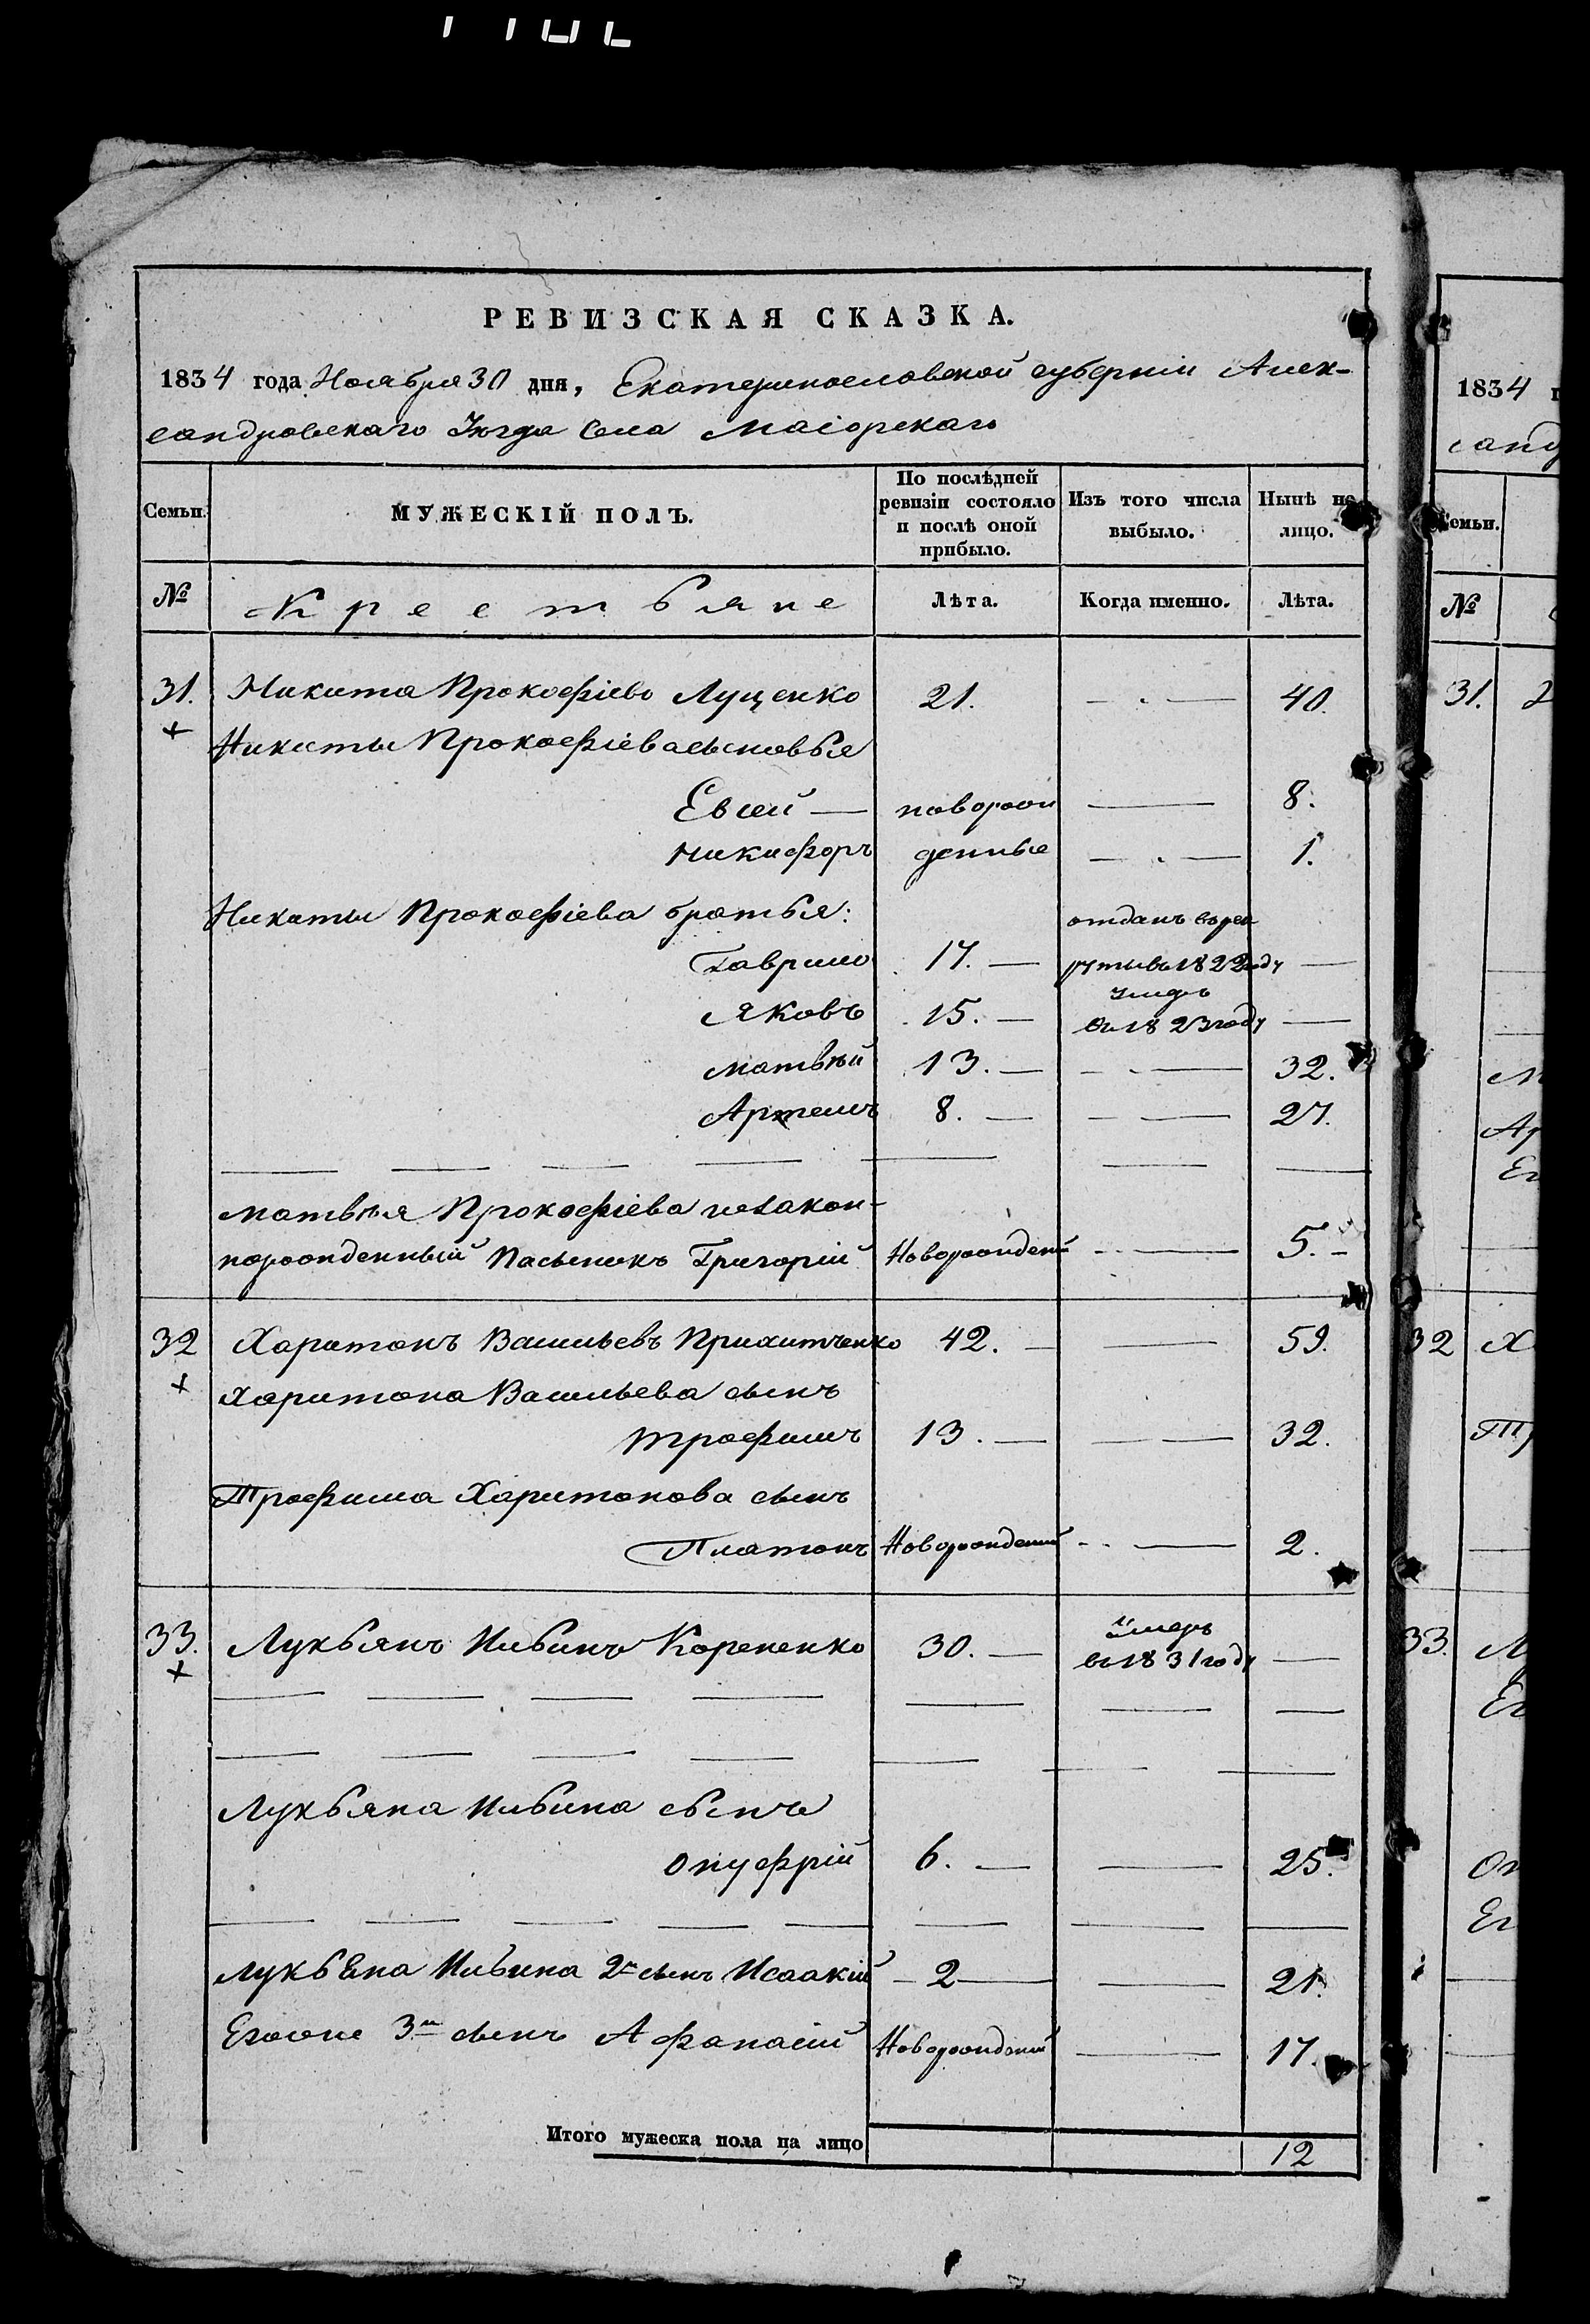 РЕВИЗСКАЯ СКАЗКА.
1834 года Ноября 30 дня, Екатеринославской губерніи Алек-
сандровскаго Уѣзда Села Маіорскаго
Семьи. МУЖЕСКІЙ ПОЛЪ. По послѣдней ревизіи состояло и послѣ оной прибыло. Изъ того числа выбыло. Нынѣ на лицо.
№ Крестьяне Лѣта. Когда именно. Лѣта.
31. Никита Прокофіевъ Луценко 21. — 40.
Никиты Прокофіева сыновья
Евсей — новорож — 8.
Никифоръ денные — 1.
Никиты Прокофіева братья:
Гаврило 17. — отданъ въ рек руты въ 1822 году —
Яковъ 15. — умеръ въ 1823 году —
Матвѣй 13. — — 32.
Артемъ 8. — — 27.
Матвѣя Прокофіева незакон-
норожденный пасынокъ Григорій Новорожден — 5. -
32 Харитонъ Васильевъ 42. — — 59.
Харитона Васильева сынъ
Трофимъ 13. — — 32.
Трофима Харитонова сынъ
Платонъ Новорожденый — 2.
33. Лукьянъ Ильинъ Корененко 30. — умеръ въ 1831 году —
Лукьяна Ильина сынъ
Онуфрій 6. — — 25.
Лукьяна Ильина 2й сынъ Исаакій — 2 — — 21.
Егоже 3й сынъ Афанасій Новорожденый — 17.
Итого мужеска пола на лицо 12
1834 г
санд
Семьи.
№
31.
М
Ар
Ег
32 Х
Тр
33. Л
Ег
Он
Ег